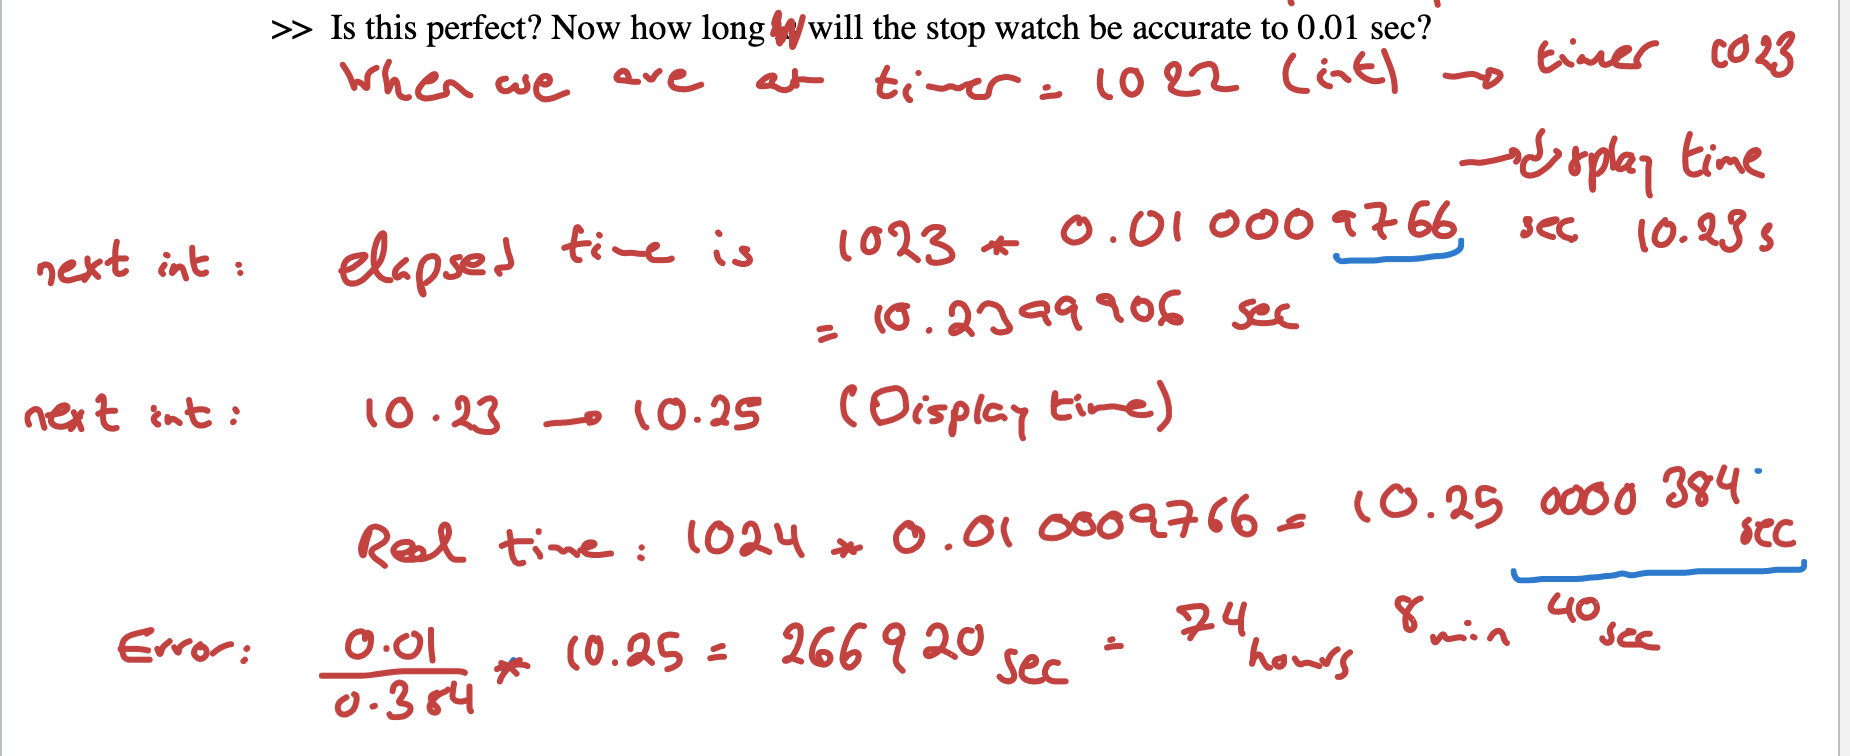 >> Is this perfect? Now how long will the stop watch be accurate to 0.01 sec?
When we are at timer = 1022 (int) → timer 1023
→ display time
next int : elapsed time is 1023 * 0.0100009766 sec 10.23 s
= 10.2399906 sec
next int : 10.23 → 10.25 (Display time)
Real time : 1024 * 0.0100009766 = 10.250000384 sec
Error : 0.01 / 0.384 * 10.25 = 266920 sec = 74 hours 8 min 40 sec